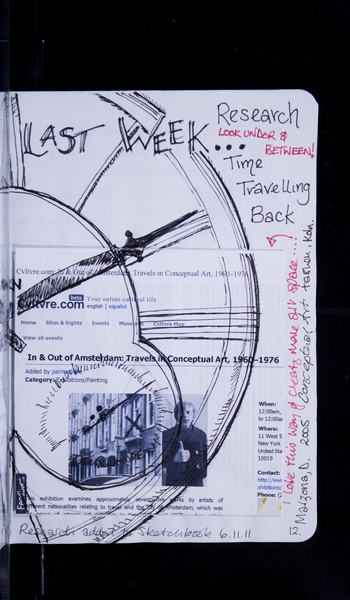 LAST WEEK...
Research
LOOK UNDER &
BETWEEN!
Time
Travelling
Back
Cvltvre.com: In & Out of Amsterdam: Travels in Conceptual Art, 1960–1976
Cvltvre.com beta Your online cultural life
english | español
Home Sites & Sights Events Museums Cvltvre Map
View all events
In & Out of Amsterdam: Travels in Conceptual Art, 1960–1976
Added by
Category: Exhibitions/Painting
When:
12:00am,
to 12:00a
Where:
11 West 5
New York
United Sta
10019
Contact:
http://www
exhibitions/
Phone: (
exhibition examines approximately seventy works by artists of
different nationalities relating to travel and the city of Amsterdam, which was
I love this way of creating more art space...!
Marzona, D. 2005 Conceptual Art
Research added to Sketchbook 6.11.11
12.